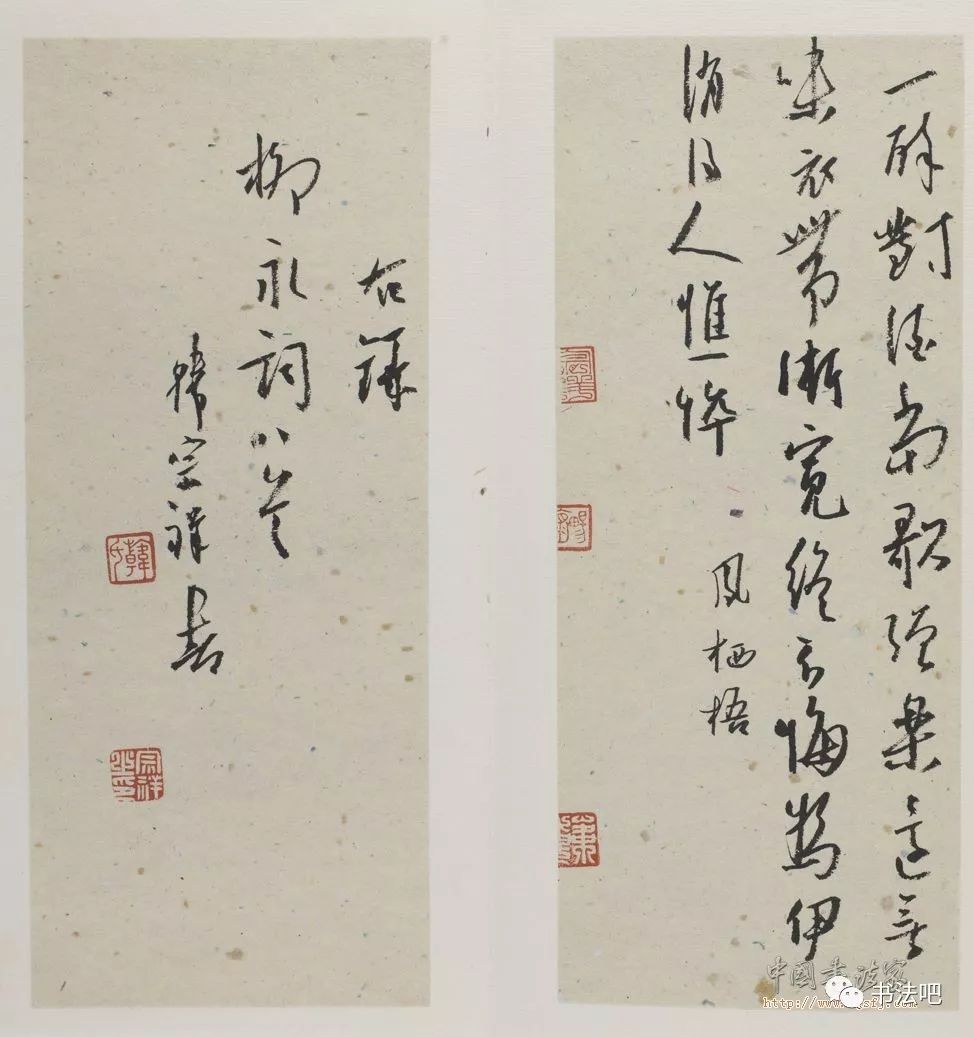 一醉對酒當歌強樂還無
味衣帶漸寬終不悔為伊
消得人憔悴 鳳栖梧
右錄
柳永詞八首
韓宗祥書
韓氏
中國書法家
书法吧